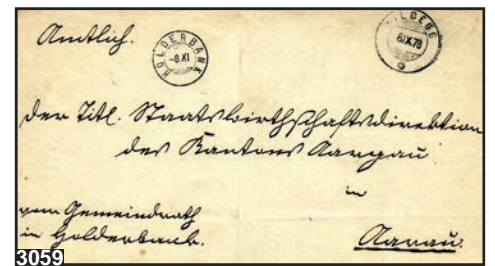 Amtlich.
HOLDERBANK
-8 XI
WILDEGG
8 IX 79
der Titl. Staatswirthschaftsdirektion
des Kantons Aargau
in
vom Gemeindrath
in Holderbank.
Aarau.
3059